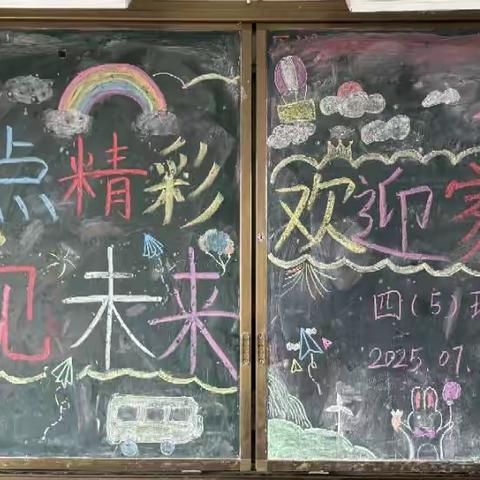 点精彩
见未来
欢迎家
四(5)班
2025.07.